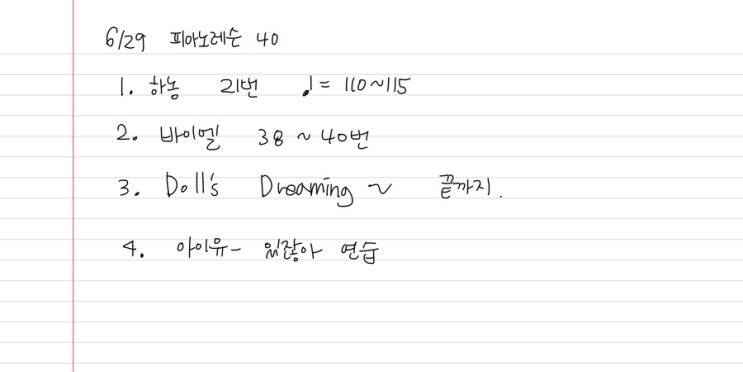 6/29 피아노레슨 40
1. 하농 21번 ♩= 110~115
2. 바이엘 38 ~ 40번
3. Doll's Dreaming ~ 끝까지.
4. 아이유- 있잖아 연습